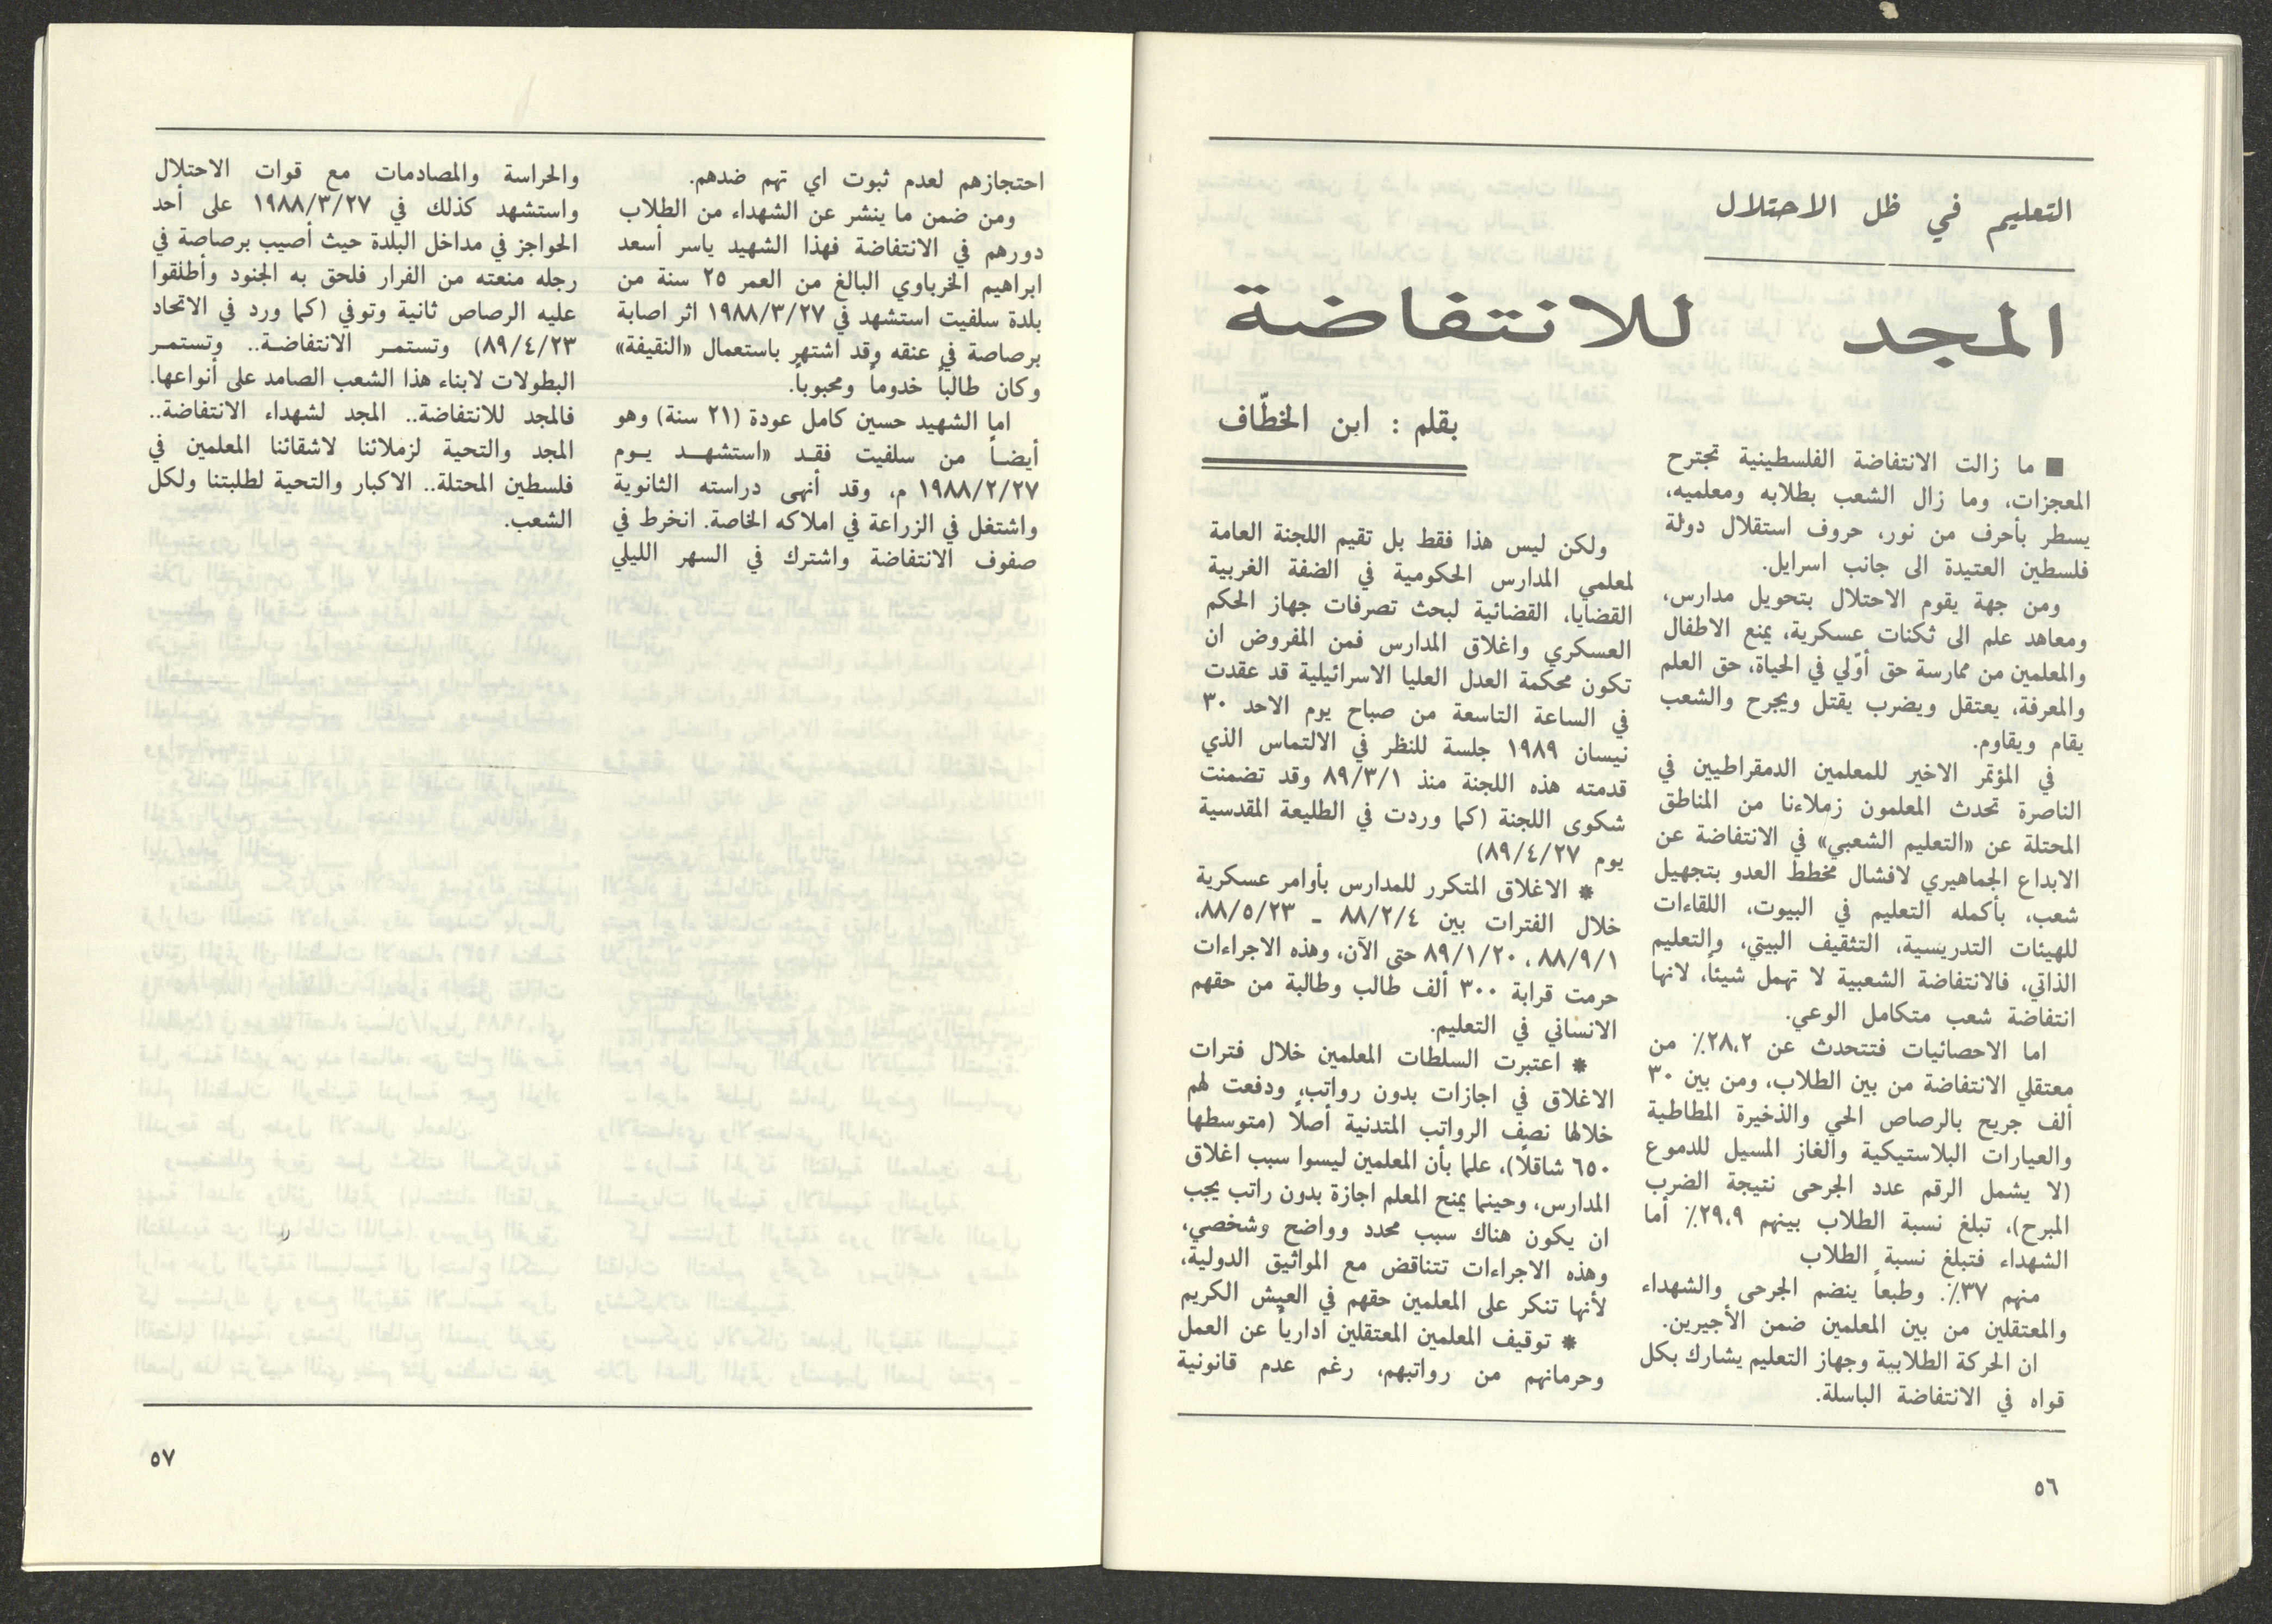 التعليم في ظل الاحتلال
المجد للانتفاضة
بقلم : ابن الخطّاف
■ ما زالت الانتفاضة الفلسطينية تجترح
المعجزات، وما زال الشعب بطلابه ومعلميه،
يسطر بأحرف من نور، حروف استقلال دولة
فلسطين العتيدة الى جانب اسرايل.
ومن جهة يقوم الاحتلال بتحويل مدارس،
ومعاهد علم الى ثكنات عسكرية، يمنع الاطفال
والمعلمين من ممارسة حق أوّلي في الحياة، حق العلم
والمعرفة، يعتقل ويضرب يقتل ويجرح والشعب
يقام ويقاوم.
في المؤتمر الاخير للمعلمين الدمقراطيين في
الناصرة تحدث المعلمون زملاءنا من المناطق
المحتلة عن «التعليم الشعبي» في الانتفاضة عن
الابداع الجماهيري لافشال مخطط العدو بتجهيل
شعب، بأكمله التعليم في البيوت، اللقاءات
للهيئات التدريسية، التثقيف البيتي، والتعليم
الذاتي، فالانتفاضة الشعبية لا تهمل شيئاً، لانها
انتفاضة شعب متكامل الوعي.
اما الاحصائيات فتتحدث عن ٢٨،٢٪ من
معتقلي الانتفاضة من بين الطلاب، ومن بين ٣٠
ألف جريح بالرصاص الحي والذخيرة المطاطية
والعيارات البلاستيكية والغاز المسيل للدموع
(لا يشمل الرقم عدد الجرحى نتيجة الضرب
المبرح)، تبلغ نسبة الطلاب بينهم ٢٩،٩٪ أما
الشهداء فتبلغ نسبة الطلاب
منهم ٣٧٪. وطبعاً ينضم الجرحى والشهداء
والمعتقلين من بين المعلمين ضمن الأجيرين.
ان الحركة الطلابية وجهاز التعليم يشارك بكل
قواه في الانتفاضة الباسلة.
ولكن ليس هذا فقط بل تقيم اللجنة العامة
لمعلمي المدارس الحكومية في الضفة الغربية
القضايا، القضائية لبحث تصرفات جهاز الحكم
العسكري واغلاق المدارس فمن المفروض ان
تكون محكمة العدل العليا الاسرائيلية قد عقدت
في الساعة التاسعة من صباح يوم الاحد ٣٠
نيسان ١٩٨٩ جلسة للنظر في الالتماس الذي
قدمته هذه اللجنة منذ ٨٩/٣/١ وقد تضمنت
شكوى اللجنة (كما وردت في الطليعة المقدسية
يوم ٨٩/٤/٢٧)
* الاغلاق المتكرر للمدارس بأوامر عسكرية
خلال الفترات بين ٨٨/٢/٤ ـ ٨٨/٥/٢٣،
٨٨/٩/١ ، ٨٩/١/٢٠ حتى الآن، وهذه الاجراءات
حرمت قرابة ٣٠٠ ألف طالب وطالبة من حقهم
الانساني في التعليم.
* اعتبرت السلطات المعلمين خلال فترات
الاغلاق في اجازات بدون رواتب، ودفعت لهم
خلالها نصف الرواتب المتدنية أصلاً (متوسطها
٦٥٠ شاقلاً)، علما بأن المعلمين ليسوا سبب اغلاق
المدارس، وحينما يمنح المعلم اجازة بدون راتب يجب
ان يكون هناك سبب محدد وواضح وشخصي،
وهذه الاجراءات تتناقض مع المواثيق الدولية،
لأنها تنكر على المعلمين حقهم في العيش الكريم
* توقيف المعلمين المعتقلين أدارياً عن العمل
وحرمانهم من رواتبهم، رغم عدم قانونية
٥٦
احتجازهم لعدم ثبوت اي تهم ضدهم.
ومن ضمن ما ينشر عن الشهداء من الطلاب
دورهم في الانتفاضة فهذا الشهيد ياسر أسعد
ابراهيم الخرباوي البالغ من العمر ٢٥ سنة من
بلدة سلفيت استشهد في ١٩٨٨/٣/٢٧ اثر اصابة
برصاصة في عنقه وقد اشتهر باستعمال «النقيفة»
وكان طالباً خدوماً ومحبوباً.
اما الشهيد حسين كامل عودة (٢١ سنة) وهو
أيضاً من سلفيت فقد «استشهد يوم
١٩٨٨/٢/٢٧ م، وقد أنهى دراسته الثانوية
واشتغل في الزراعة في املاكه الخاصة. انخرط في
صفوف الانتفاضة واشترك في السهر الليلي
والحراسة والمصادمات مع قوات الاحتلال
واستشهد كذلك في ١٩٨٨/٣/٢٧ على أحد
الحواجز في مداخل البلدة حيث أصيب برصاصة في
رجله منعته من الفرار فلحق به الجنود وأطلقوا
عليه الرصاص ثانية وتوفي (كما ورد في الاتحاد
٨٩/٤/٢٣) وتستمر الانتفاضة.. وتستمر
البطولات لابناء هذا الشعب الصامد على أنواعها.
فالمجد للانتفاضة.. المجد لشهداء الانتفاضة..
المجد والتحية لزملائنا لاشقائنا المعلمين في
فلسطين المحتلة.. الاكبار والتحية لطلبتنا ولكل
الشعب.
٥٧